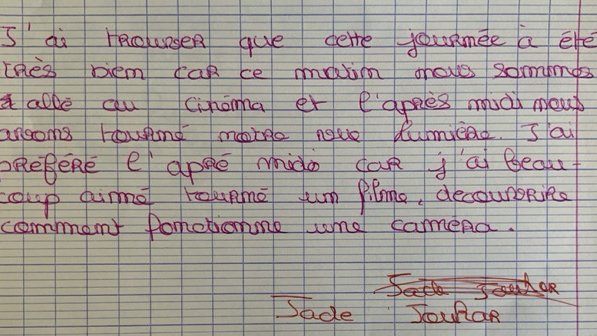 J'ai trouver que cette journée à été
très bien car ce matin nous sommes
allé au cinéma et l'après midi nous
avons tourné notre vue Lumière. J'ai
préféré l'apré midi car j'ai beau-
coup aimé tourné un filme, decouvrire
comment fonctionne une caméra.
Jade Jouhar
Jade Jouhar